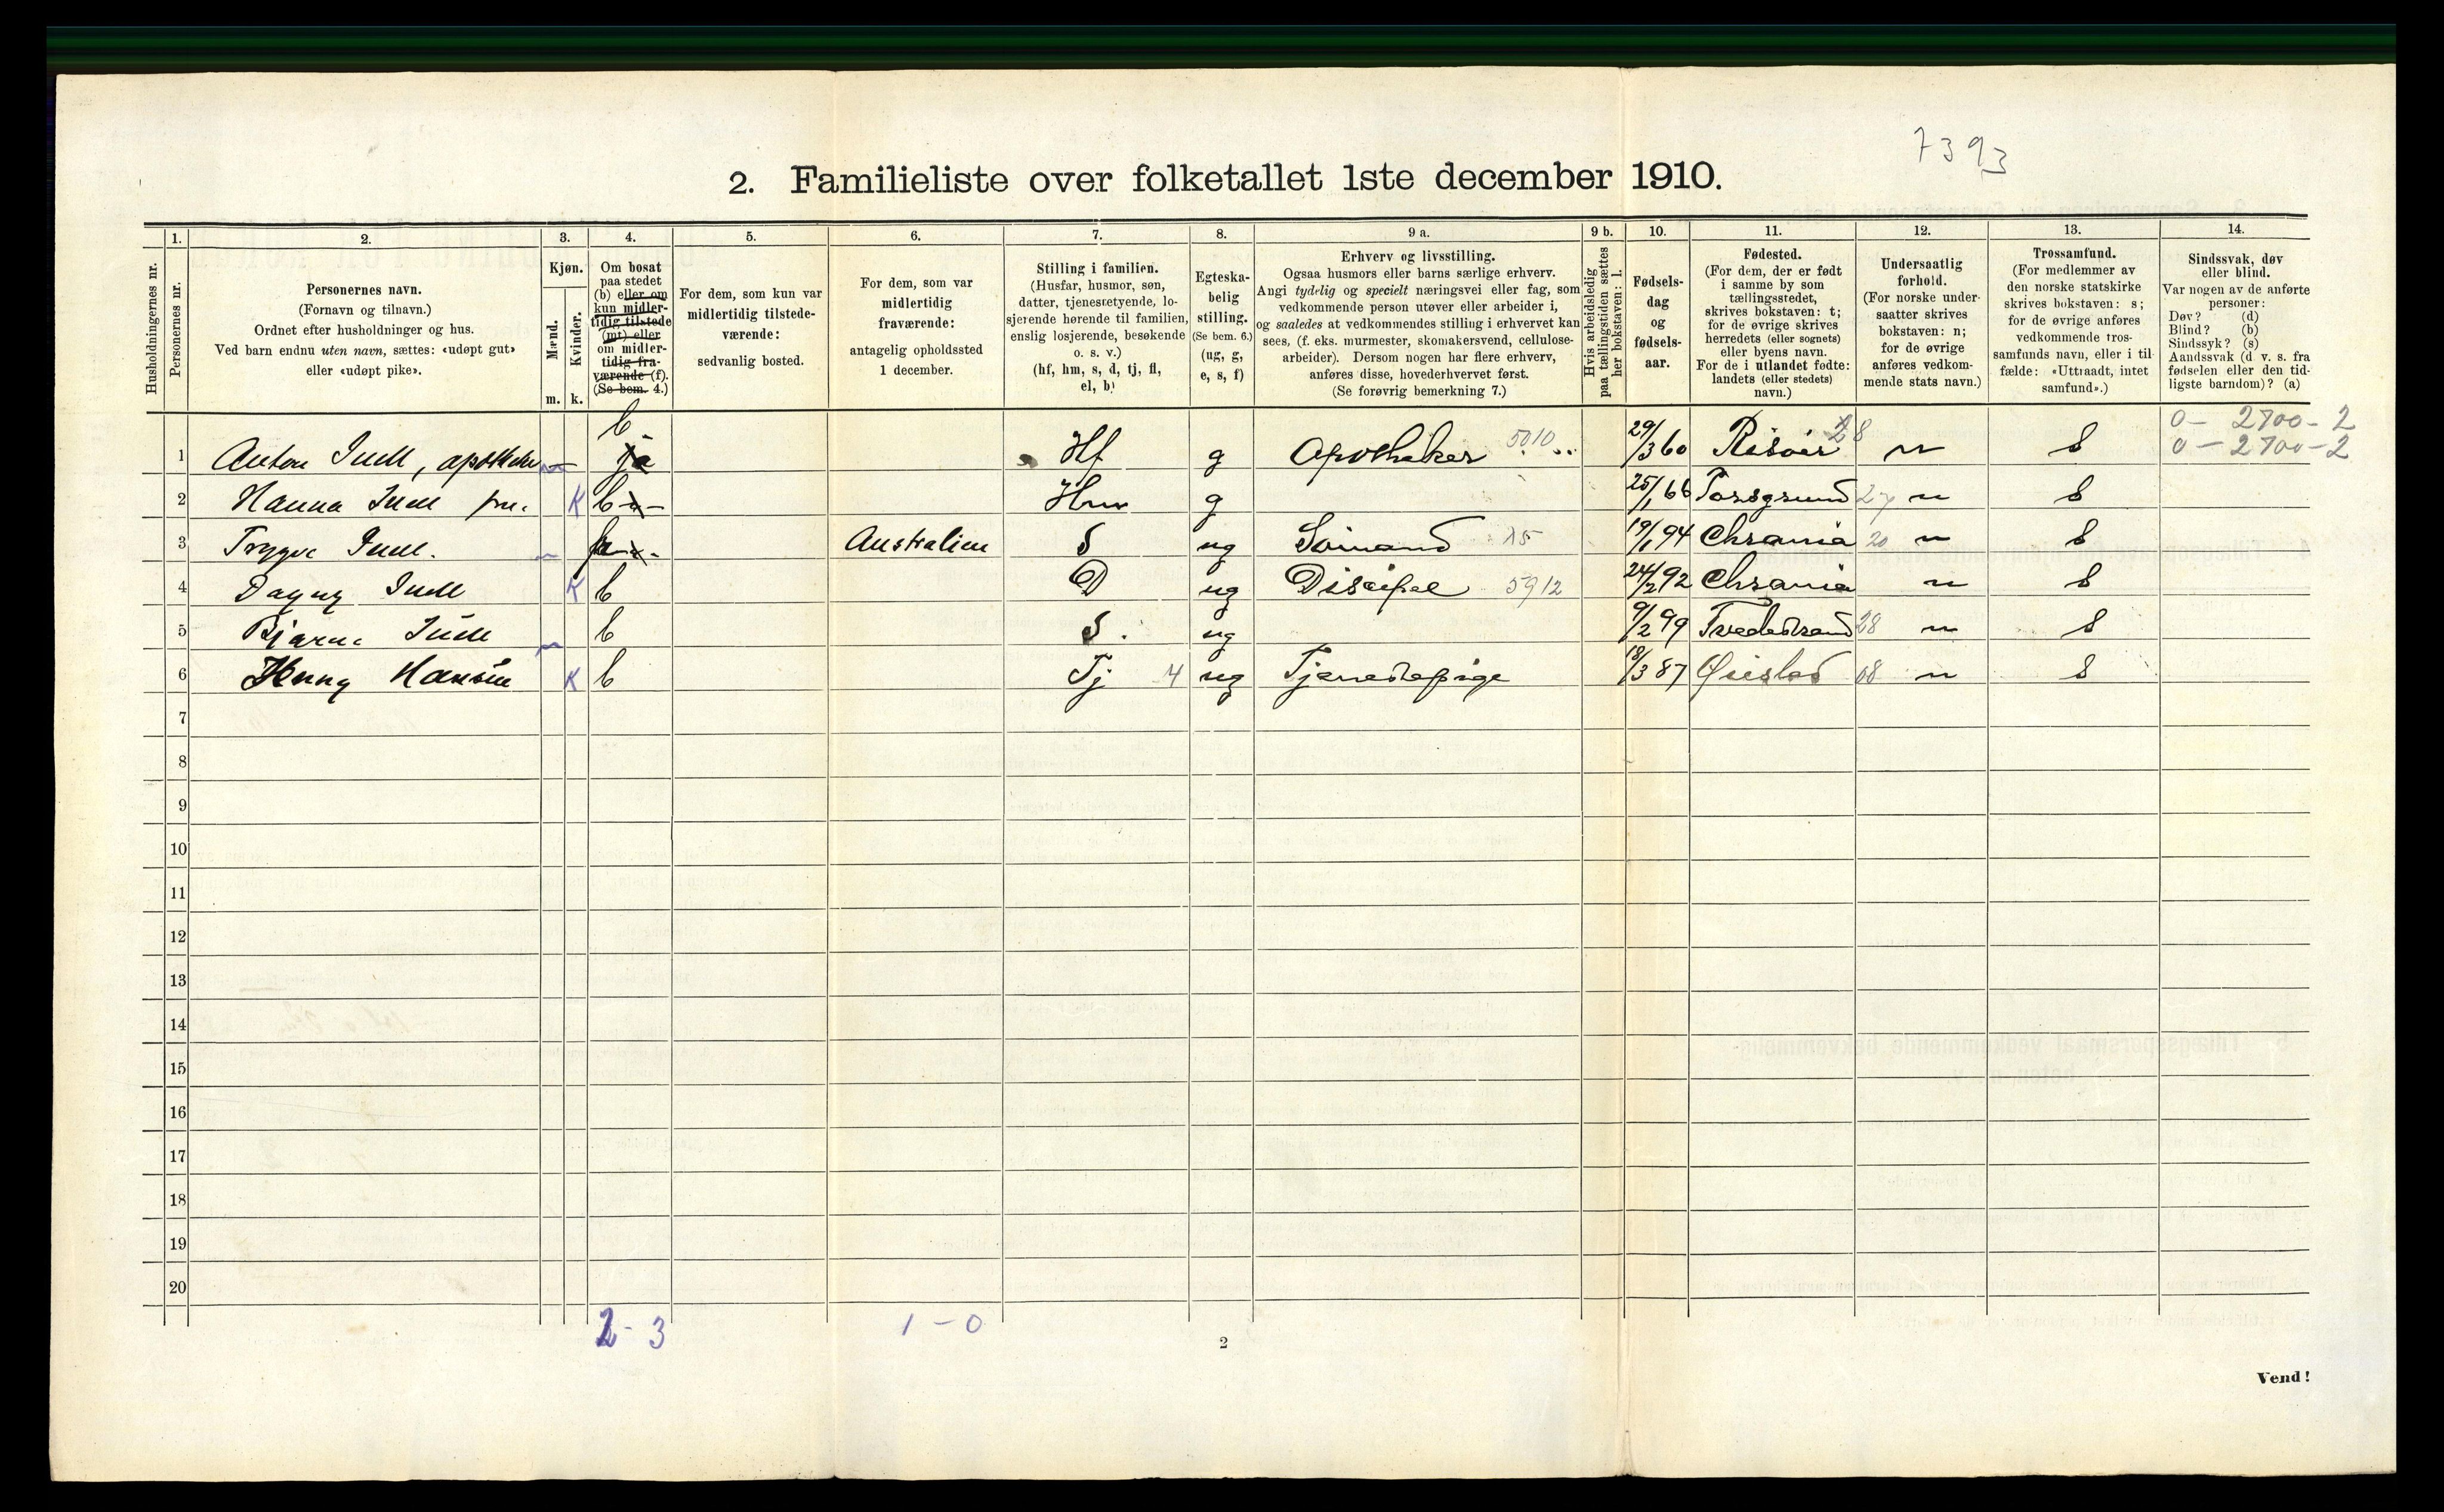 7393
2. Familieliste over folketallet 1ste december 1910.
1. 2. 3. 4. 5. 6. 7. 8. 9 a. 9 b. 10. 11. 12. 13. 14.
Husholdningernes nr.
Personernes nr.
Personernes navn.
(Fornavn og tilnavn.)
Ordnet efter husholdninger og hus.
Ved barn endnu uten navn, sættes: «udøpt gut»
eller «udøpt pike».
Kjøn.
Mænd.
Kvinder.
m. k.
Om bosat
paa stedet
(b) eller om
kun midler-
tidig tilstede
(mt) eller
om midler-
tidig fra-
værende (f).
(Se bem. 4.)
For dem, som kun var
midlertidig tilstede-
værende:
sedvanlig bosted.
For dem, som var
midlertidig
fraværende:
antagelig opholdssted
1 december.
Stilling i familien.
(Husfar, husmor, søn,
datter, tjenestetyende, lo-
sjerende hørende til familien,
enslig losjerende, besøkende
o. s. v.)
(hf, hm, s, d, tj, fl,
el, b)
Egteska-
belig
stilling.
(Se bem. 6.)
(ug, g,
e, s, f)
Erhverv og livsstilling.
Ogsaa husmors eller barns særlige erhverv.
Angi tydelig og specielt næringsvei eller fag, som
vedkommende person utøver eller arbeider i,
og saaledes at vedkommendes stilling i erhvervet kan
sees, (f. eks. murmester, skomakersvend, cellulose-
arbeider). Dersom nogen har flere erhverv,
anføres disse, hovederhvervet først.
(Se forøvrig bemerkning 7.)
Hvis arbeidsledig
paa tællingstiden sættes
her bokstaven: l.
Fødsels-
dag
og
fødsels-
aar.
Fødested.
(For dem, der er født
i samme by som
tællingsstedet,
skrives bokstaven: t;
for de øvrige skrives
herredets (eller sognets)
eller byens navn.
For de i utlandet fødte:
landets (eller stedets)
navn.)
Undersaatlig
forhold.
(For norske under-
saatter skrives
bokstaven: n;
for de øvrige
anføres vedkom-
mende stats navn.)
Trossamfund.
(For medlemmer av
den norske statskirke
skrives bokstaven: s;
for de øvrige anføres
vedkommende tros-
samfunds navn, eller i til-
fælde: «Uttraadt, intet
samfund».)
Sindssvak, døv
eller blind.
Var nogen av de anførte
personer:
Døv? (d)
Blind? (b)
Sindssyk? (s)
Aandssvak (d. v. s. fra
fødselen eller den tid-
ligste barndom)? (a)
0 - 2700 - 2
1 Anton Juell, apotheker m b ja Hf g Apotheker 5010 29/3 60 Risöer 28 n S 0 - 2700 - 2
2 Hanna Juell fru. K b Hm g 25/1 66 Porsgrund 27 n S
3 Trygve Juell. m Australien S ug Sömand 15 19/1 94 Chrania 20 n S
4 Dagny Juell K b D ug Discipel 5912 24/2 92 Chrania n S
5 Bjarne Juell m b S. ug 9/2 99 Tvedestrand 28 n S
6 Henny Hansen K b Tj 4 ug Tjenestepige 18/3 87 Øiestad 08 n S
7
8
9
10
11
12
13
14
15
16
17
18
19
20
2 - 3 1 - 0
2
Vend!